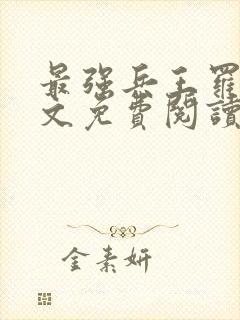 最强兵王罗
文免費閱讀
金素妍